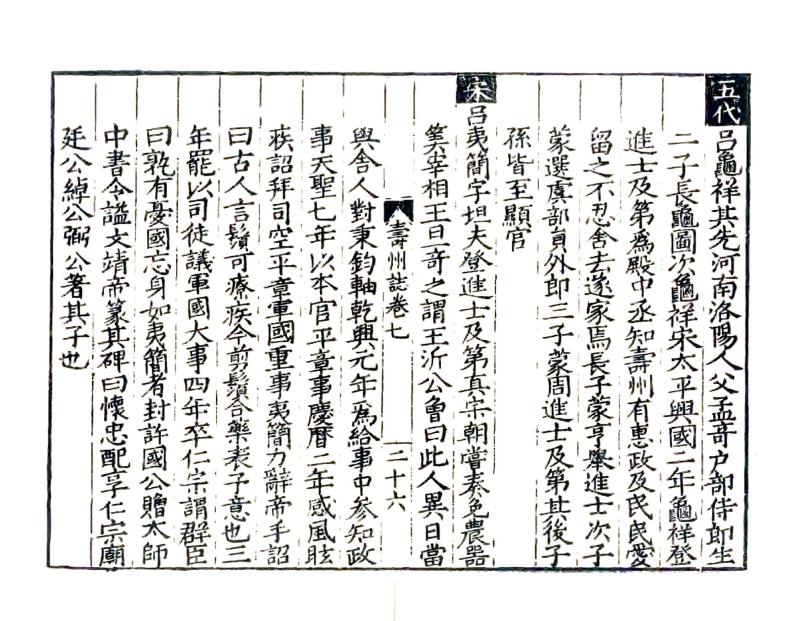 五代吕龜祥其先河南洛陽人父孟竒户部侍郎生
二子長龜圖次龜祥宋太平興國二年龜祥登
進士及第爲殿中丞知壽州有惠政及民民愛
留之不忍舍去遂家焉長子蒙亨舉進士次子
蒙選虞部員外郎三子蒙周進士及第其後子
孫皆至顯官
宋吕夷簡字坦夫登進士及第真宗朝嘗奏免農器
筭宰相王旦竒之謂王沂公曾曰此人異日當
壽州誌卷七 二十六
與舍人對秉鈞軸乾興元年爲給事中參知政
事天聖七年以本官平章事慶曆二年感風眩
疾詔拜司空平章軍國重事夷簡力辭帝手詔
曰古人言鬚可療疾今剪鬚合藥表予意也三
年罷以司徒議軍國大事四年卒仁宗謂群臣
曰孰有憂國忘身如夷簡者封許國公贈太師
中書令謚文靖帝篆其碑曰懷忠配享仁宗廟
廷公綽公弼公著其子也